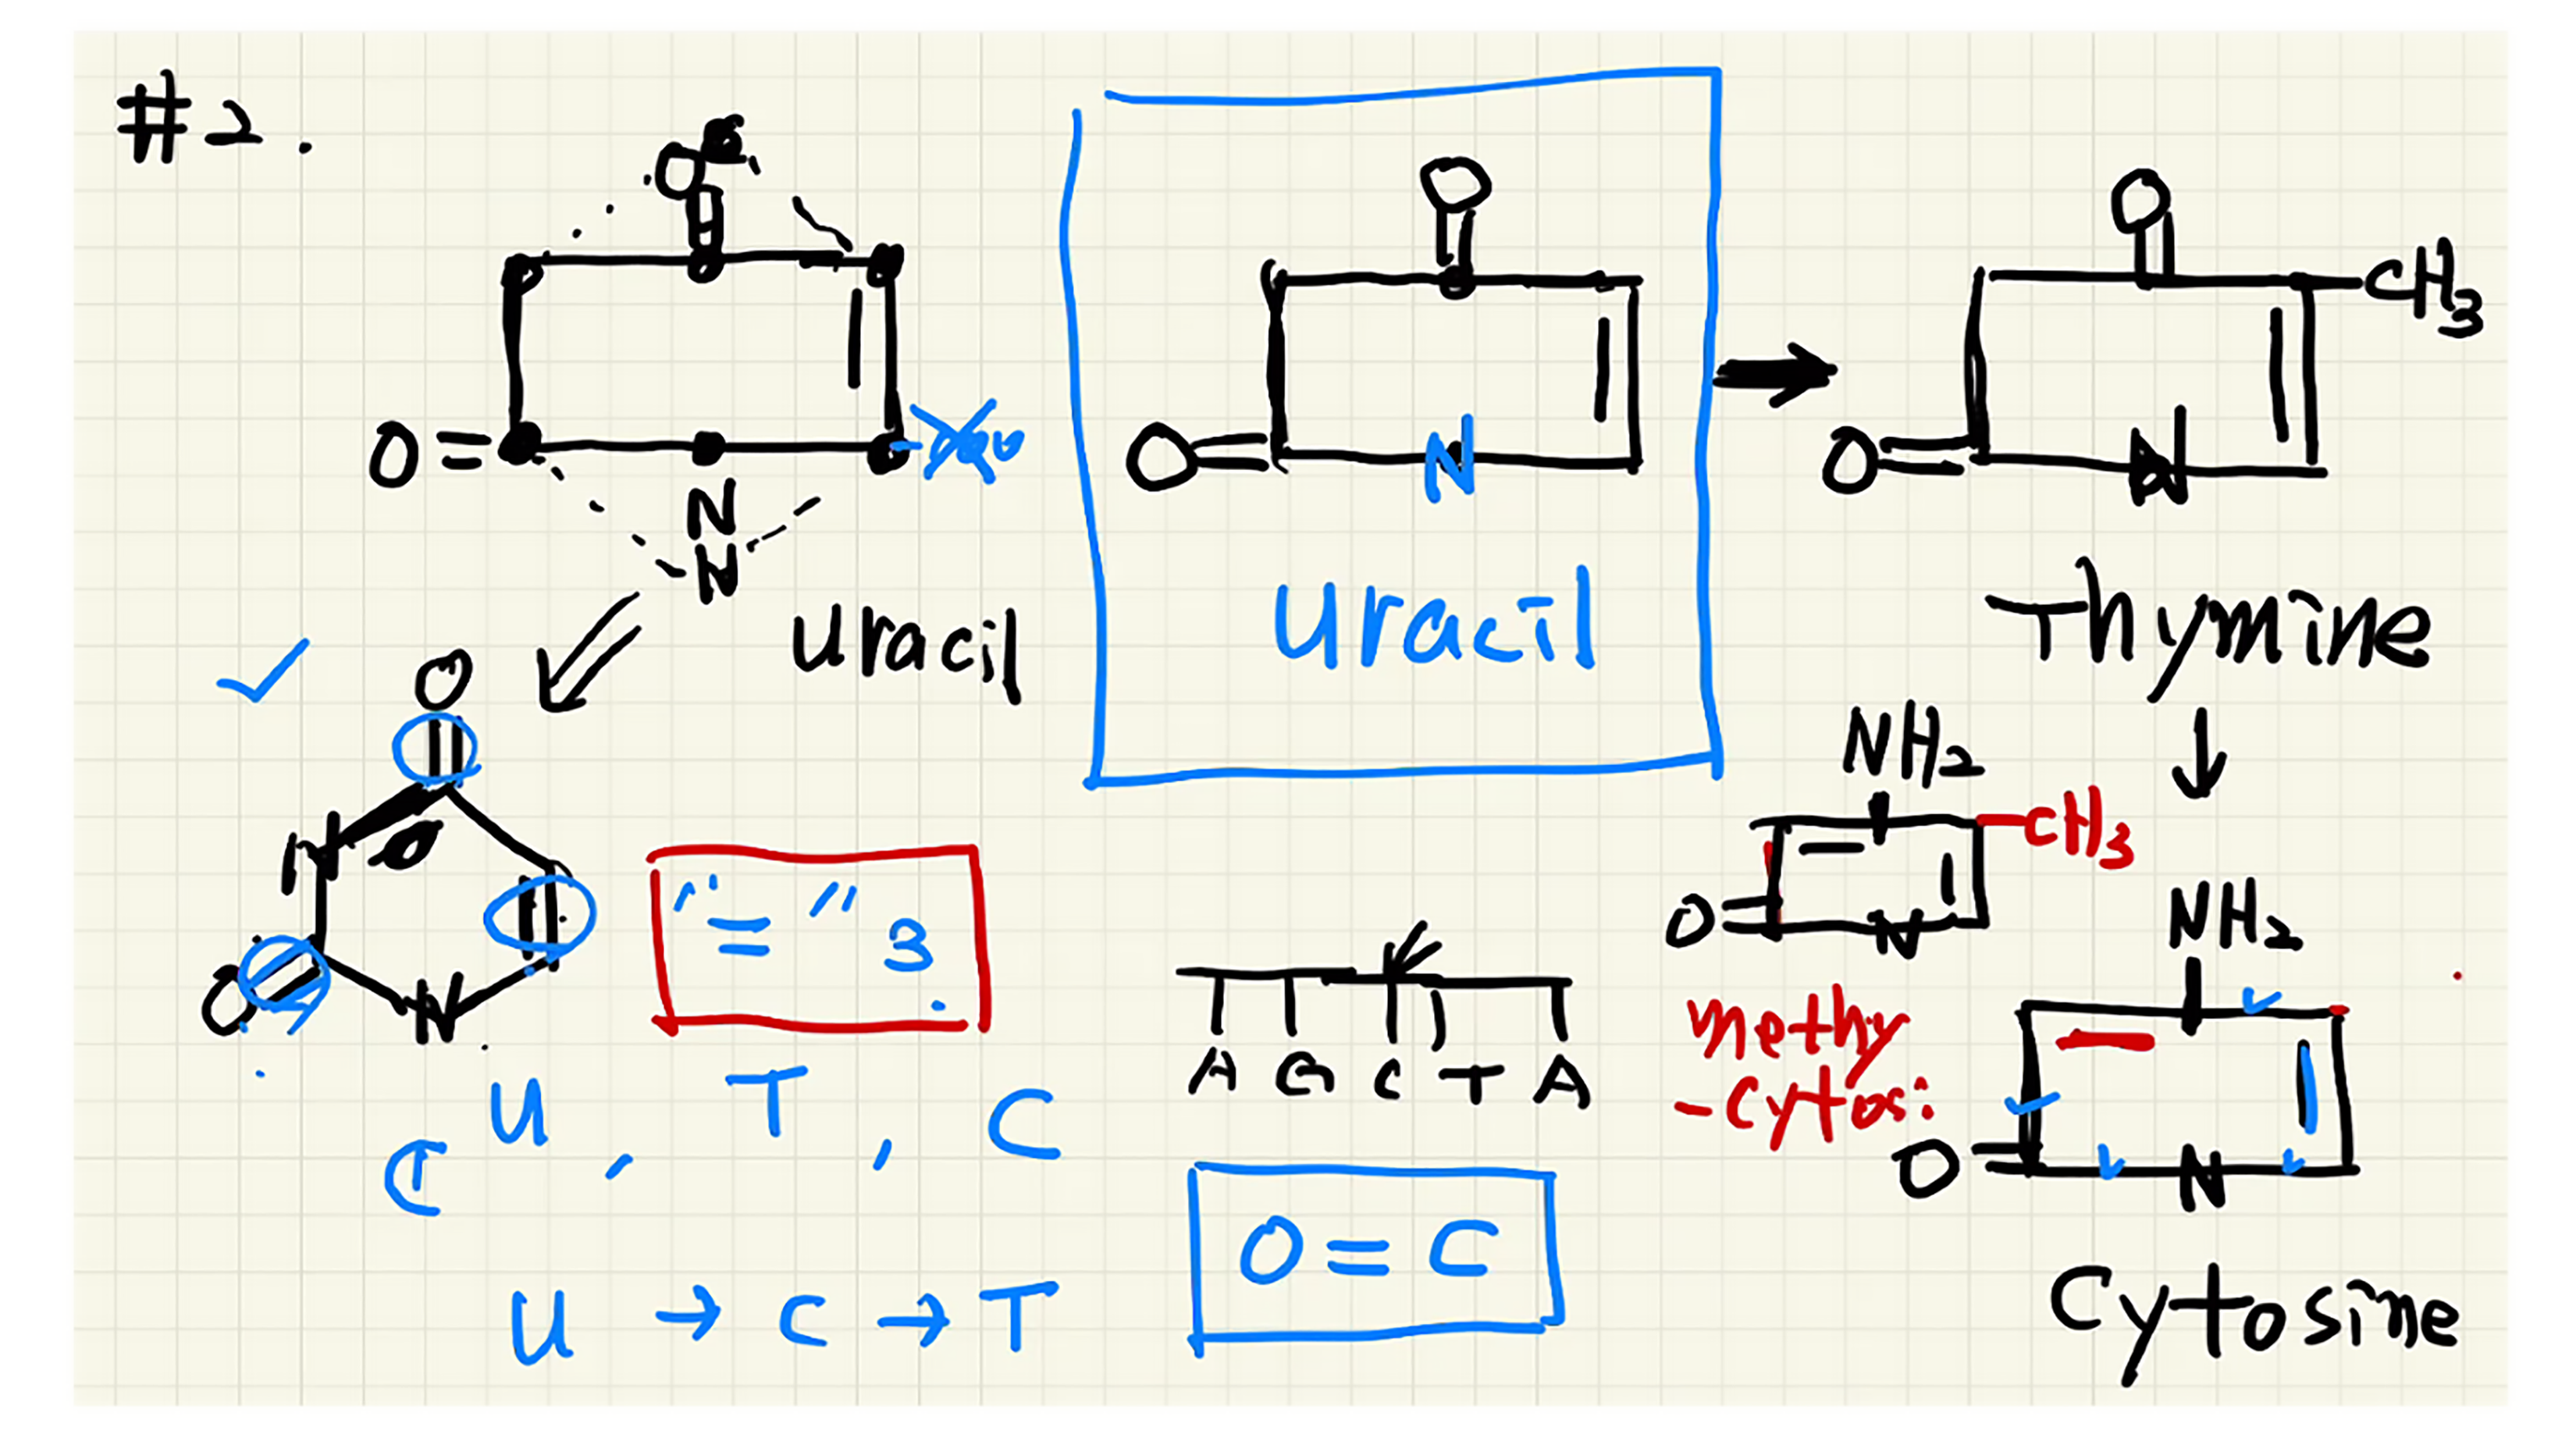 #2.
O
O=
N
N
Uracil
O
O
N
Uracil
O
CH3
O
N
Thymine
O
N
O
N
"=" 3
U, T, C
C
U → C → T
A G C T A
O = C
NH2
CH3
O
N
methy
-cytosi
NH2
O
N
Cytosine